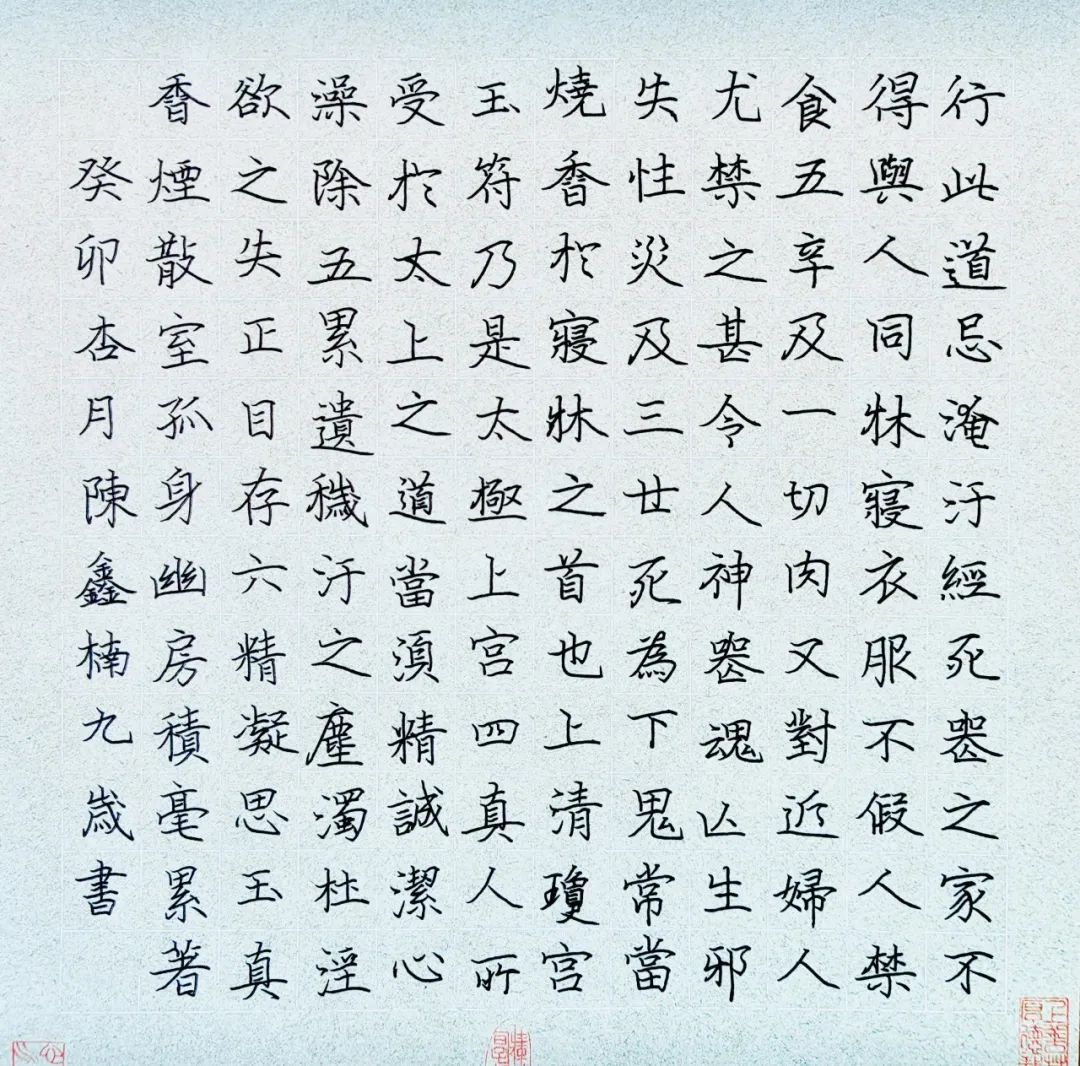 行此道忌淹汙經死喪之家不
得與人同牀寢衣服不假人禁
食五辛及一切肉又對近婦人
尤禁之甚令人神喪魂亾生邪
失性災及三世死為下鬼常當
燒香於寢牀之首也上清瓊宮
玉符乃是太極上宮四真人所
受於太上之道當須精誠潔心
澡除五累遺穢汙之塵濁杜淫
欲之失正目存六精凝思玉真
香煙散室孤身幽房積毫累著
癸卯杏月陳鑫楠九歲書